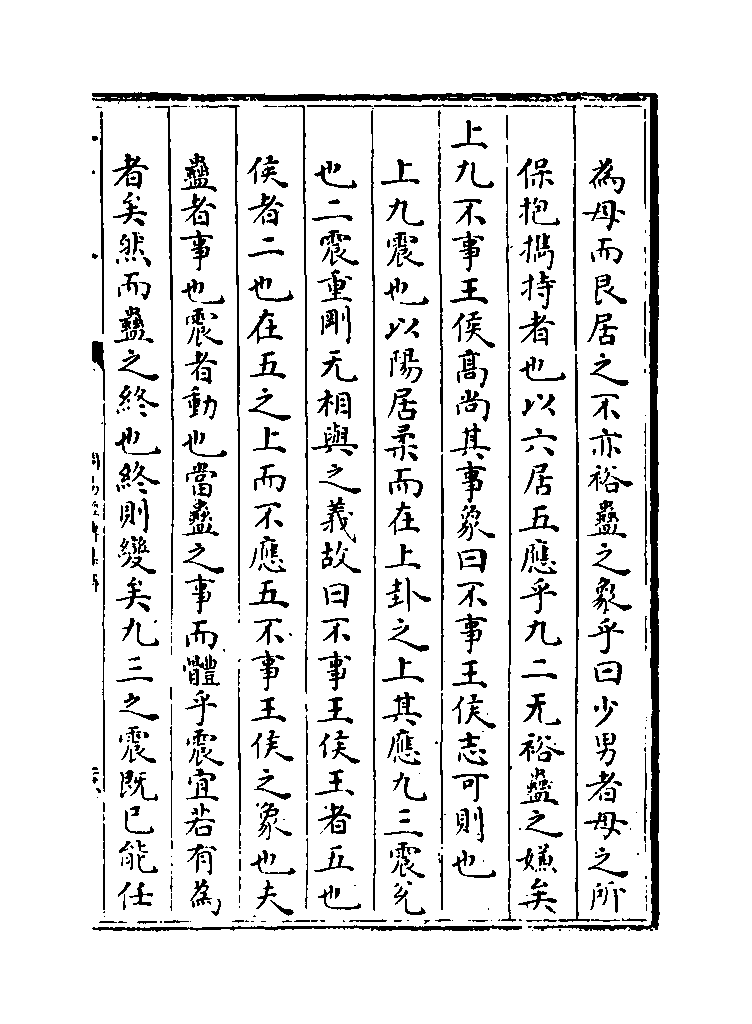 為母而艮居之不亦裕蠱之象乎曰少男者母之所
保抱㩗持者也以六居五應乎九二无裕蠱之嫌矣
上九不事王侯高尚其事象曰不事王侯志可則也
上九震也以陽居柔而在上卦之上其應九三震允
也二震重剛无相與之義故曰不事王侯王者五也
侯者二也在五之上而不應五不事王侯之象也夫
蠱者事也震者動也當蠱之事而體乎震宜若有為
者矣然而蠱之終也終則變矣九三之震既已能任